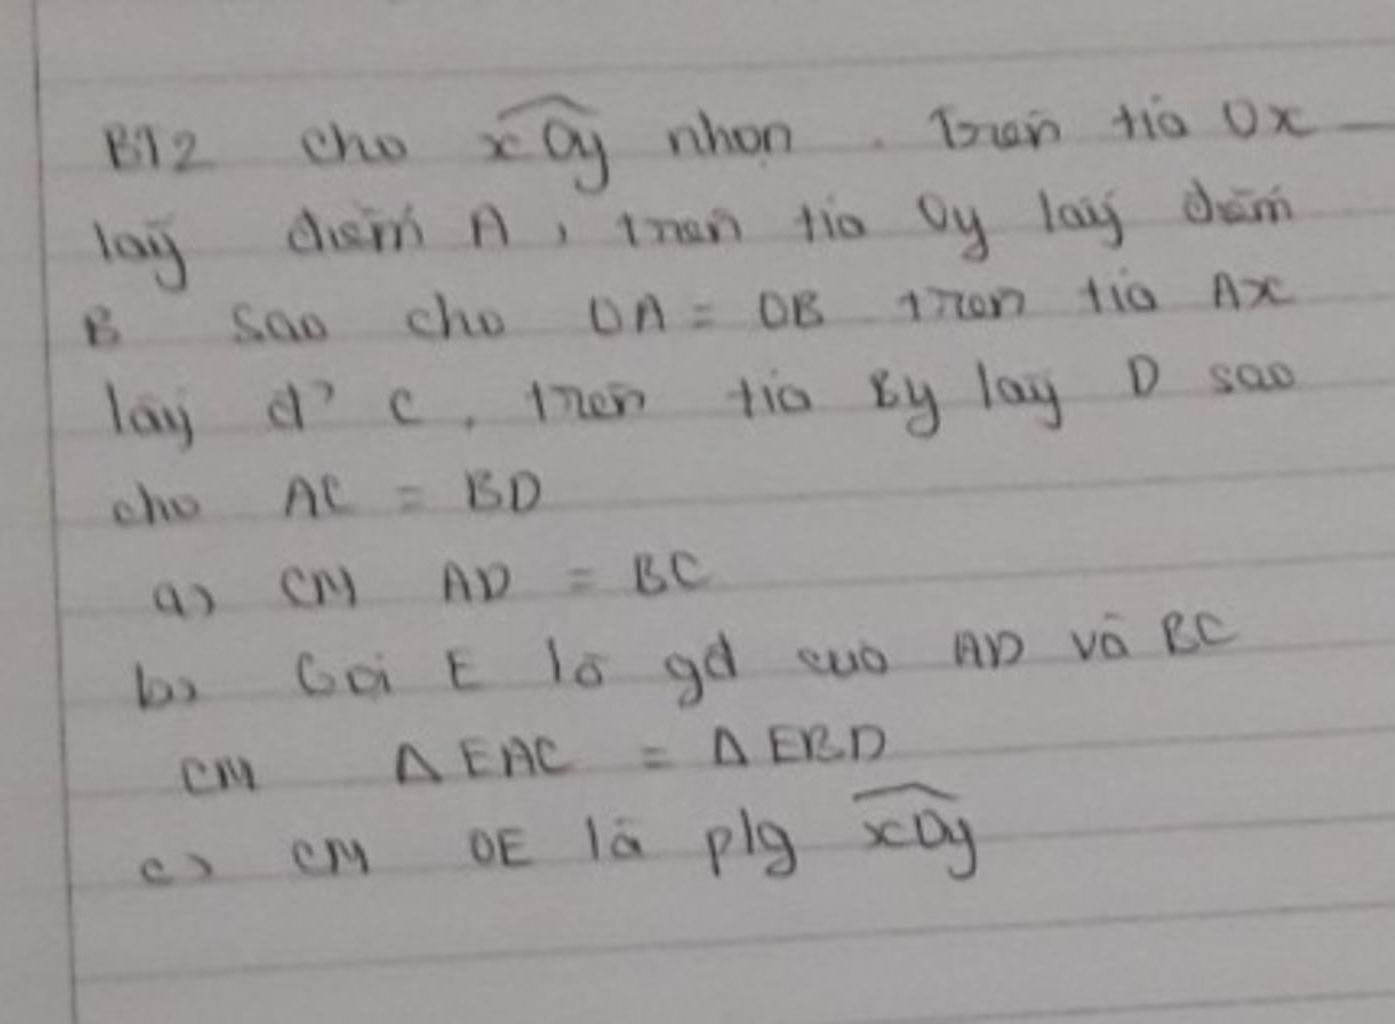 BT2 cho xOy nhọn. Trên tia Ox
lấy điểm A, trên tia Oy lấy điểm
B sao cho OA = OB trên tia Ax
lấy đ' C, trên tia By lấy D sao
cho AC = BD
a) CM AD = BC
b) Gọi E là gđ của AD và BC
CM Δ EAC = Δ EBD
c) CM OE là p/g xOy